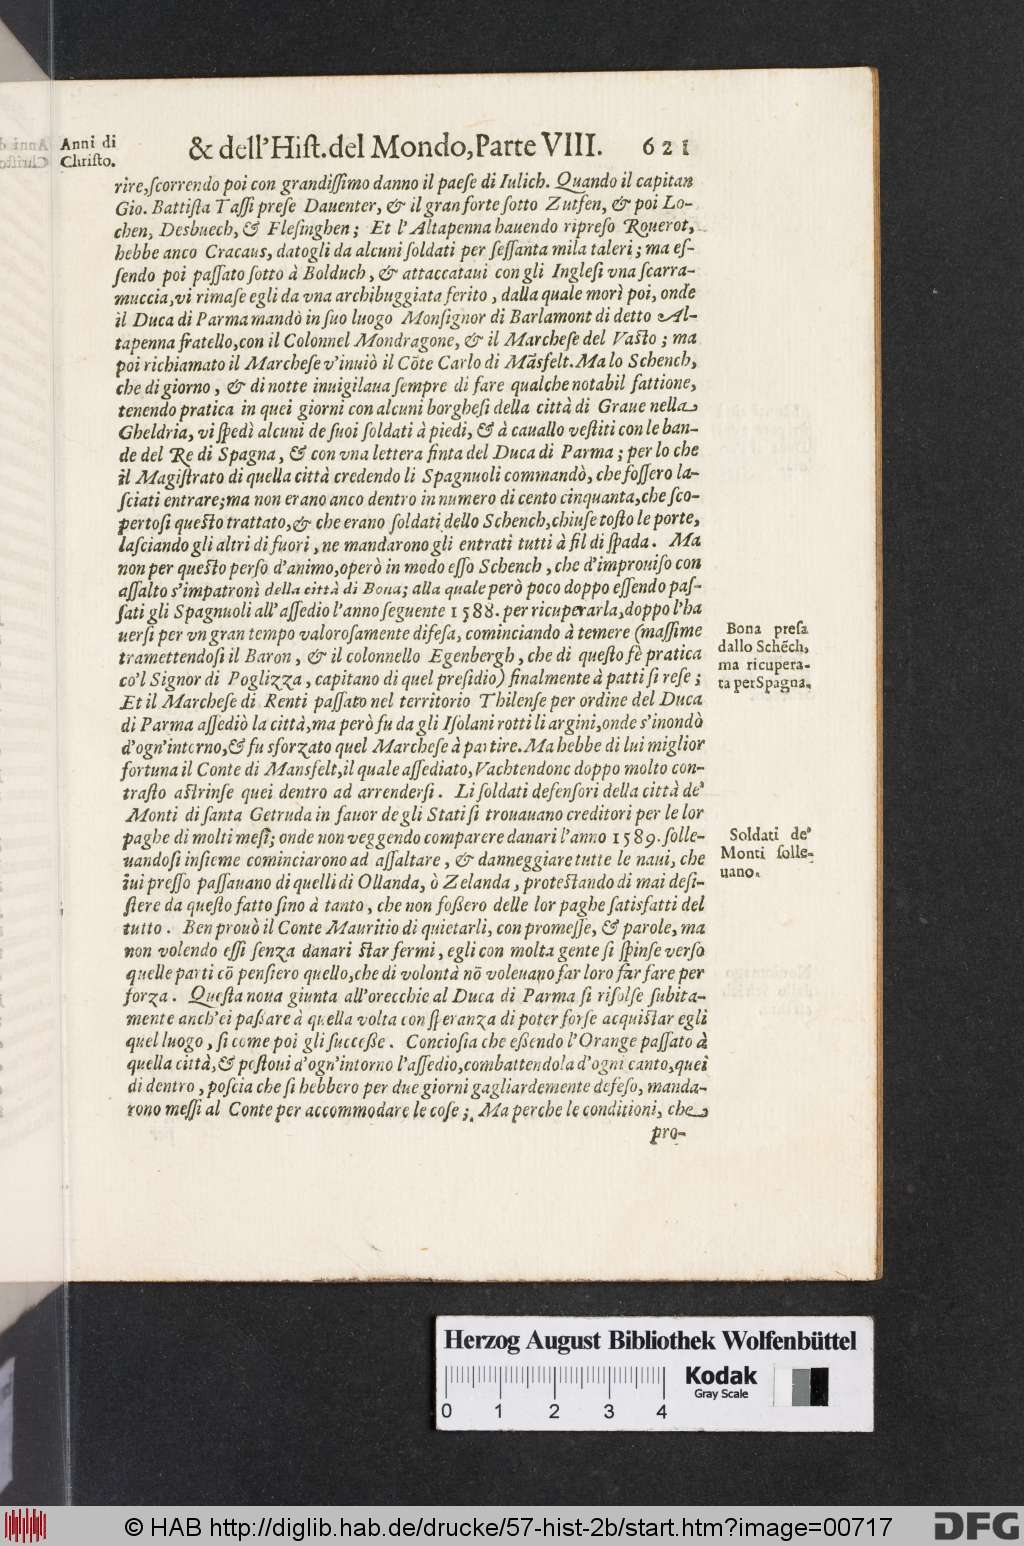 Anni di
Christo.
& dell'Hiſt. del Mondo, Parte VIII. 621
rire, ſcorrendo poi con grandiſſimo danno il paeſe di Iulich. Quando il capitan
Gio. Battiſta Taſſi preſe Dauenter, & il gran forte ſotto Zutfen, & poi Lo-
chen, Desbuech, & Fleſinghen; Et l'Altapenna hauendo ripreſo Rouerot,
hebbe anco Cracaus, datogli da alcuni ſoldati per ſeſſanta mila taleri; ma eſ-
ſendo poi paſſato ſotto à Bolduch, & attaccataui con gli Ingleſi vna ſcarra-
muccia, vi rimaſe egli da vna archibuggiata ferito, dalla quale morì poi, onde
il Duca di Parma mandò in ſuo luogo Monſignor di Barlamont di detto Al-
tapenna fratello, con il Colonnel Mondragone, & il Marcheſe del Vaſto; ma
poi richiamato il Marcheſe v'inuiò il Cōte Carlo di Māsfelt. Ma lo Schench,
che di giorno, & di notte inuigilaua ſempre di fare qualche notabil fattione,
tenendo pratica in quei giorni con alcuni borgheſi della città di Graue nella
Gheldria, vi ſpedì alcuni de ſuoi ſoldati à piedi, & à cauallo veſtiti con le ban-
de del Re di Spagna, & con vna lettera finta del Duca di Parma; per lo che
il Magiſtrato di quella città credendo li Spagnuoli commandò, che foſſero la-
ſciati entrare; ma non erano anco dentro in numero di cento cinquanta, che ſco-
pertoſi queſto trattato, & che erano ſoldati dello Schench, chiuſe toſto le porte,
laſciando gli altri di fuori, ne mandarono gli entrati tutti à fil di ſpada. Ma
non per queſto perſo d'animo, operò in modo eſſo Schench, che d'improuiſo con
aſſalto s'impatronì della città di Bona; alla quale però poco doppo eſſendo paſ-
ſati gli Spagnuoli all'aſſedio l'anno ſeguente 1588. per ricuperarla, doppo l'ha
uerſi per vn gran tempo valoroſamente difeſa, cominciando à temere (maſſime
tramettendoſi il Baron, & il colonnello Egenbergh, che di queſto fè pratica
co'l Signor di Poglizza, capitano di quel preſidio) finalmente à patti ſi reſe;
Et il Marcheſe di Renti paſſato nel territorio Thilenſe per ordine del Duca
di Parma aſſediò la città, ma però fu da gli Iſolani rotti li argini, onde s'inondò
d'ogn'intorno, & fu sforzato quel Marcheſe à partire. Ma hebbe di lui miglior
fortuna il Conte di Mansfelt, il quale aſſediato, Vachtendonc doppo molto con-
traſto aſtrinſe quei dentro ad arrenderſi. Li ſoldati defenſori della città de'
Monti di ſanta Getruda in fauor de gli Stati ſi trouauano creditori per le lor
paghe di molti meſi; onde non veggendo comparere danari l'anno 1589. ſolle-
uandoſi inſieme cominciarono ad aſſaltare, & danneggiare tutte le naui, che
iui preſſo paſſauano di quelli di Ollanda, ò Zelanda, proteſtando di mai deſi-
ſtere da queſto fatto ſino à tanto, che non foſſero delle lor paghe ſatisfatti del
tutto. Ben prouò il Conte Mauritio di quietarli, con promeſſe, & parole, ma
non volendo eſſi ſenza danari ſtar fermi, egli con molta gente ſi ſpinſe verſo
quelle parti cō penſiero quello, che di volontà nō voleuano far loro far fare per
forza. Queſta noua giunta all'orecchie al Duca di Parma ſi riſolſe ſubita-
mente anch'ei paſſare à quella volta con ſperanza di poter forſe acquiſtar egli
quel luogo, ſi come poi gli ſucceſſe. Concioſia che eſſendo l'Orange paſſato à
quella città, & poſtoui d'ogn'intorno l'aſſedio, combattendola d'ogni canto, quei
di dentro, poſcia che ſi hebbero per due giorni gagliardemente defeſo, manda-
rono meſſi al Conte per accommodare le coſe; Ma perche le conditioni, che
pro-
Bona preſa
dallo Schēch,
ma ricupera-
ta per Spagna.
Soldati de'
Monti ſolle-
uano.
Herzog August Bibliothek Wolfenbüttel
Kodak
Gray Scale
0 1 2 3 4
© HAB http://diglib.hab.de/drucke/57-hist-2b/start.htm?image=00717
DFG